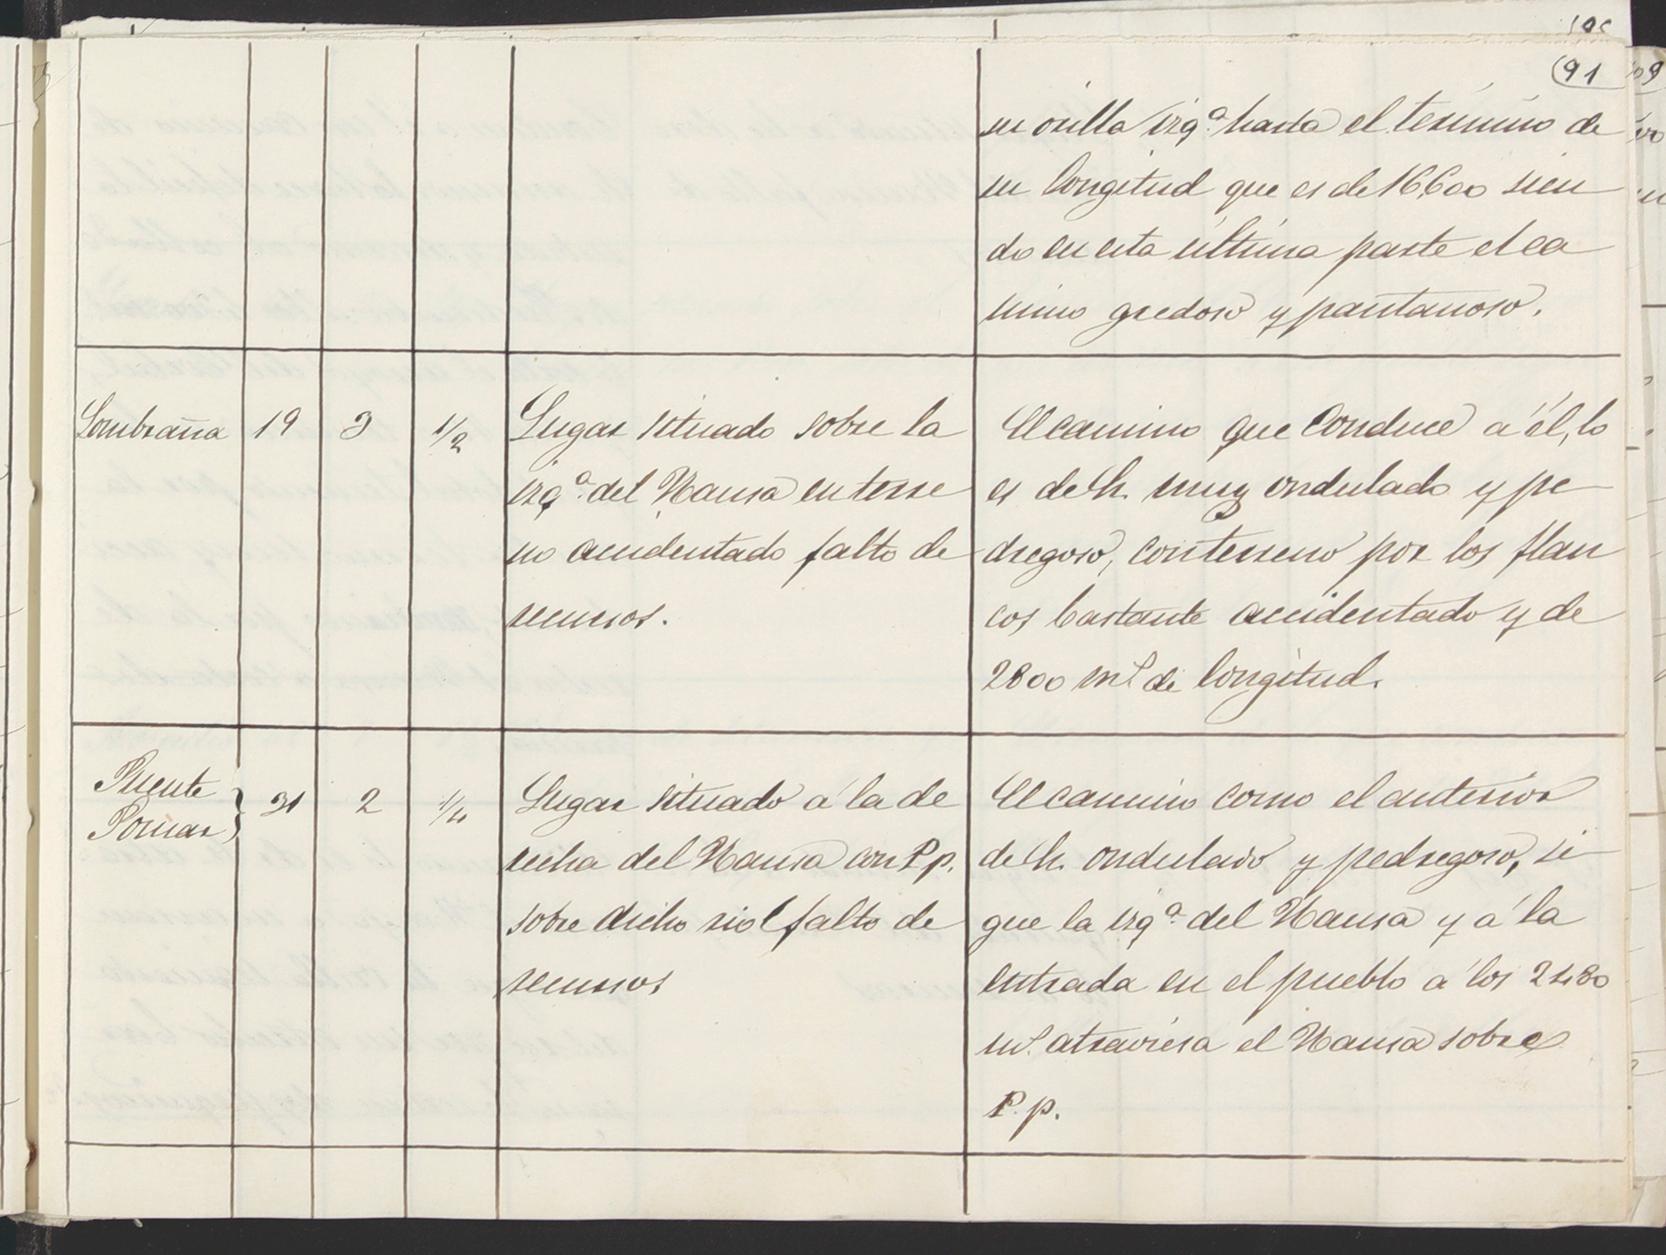 91
su orilla izqª. hasta el término de
su longitud que es de 16600 sien
do en esta última parte el ca
mino gredoso y pantanoso.
Sombraña 19 3 1/2
Lugar situado sobre la
izqª. del Nansa en terre
no accidentado falto de
recursos.
El camino que conduce a él, lo
es de h. muy ondulado y pe
dregoso, con terreno por los flan
cos bastante accidentado y de
2800 ms. de longitud.
Puente
Pomar } 31 2 1/4
Lugar situado a la de
recha del Nansa con P. p.
sobre dicho rio falto de
recursos
El camino como el anterior
de h. ondulado y pedregoso, si
gue la izqª. del Nansa y a la
entrada en el pueblo a los 2480
ms. atraviesa el Nansa sobre
P. p.